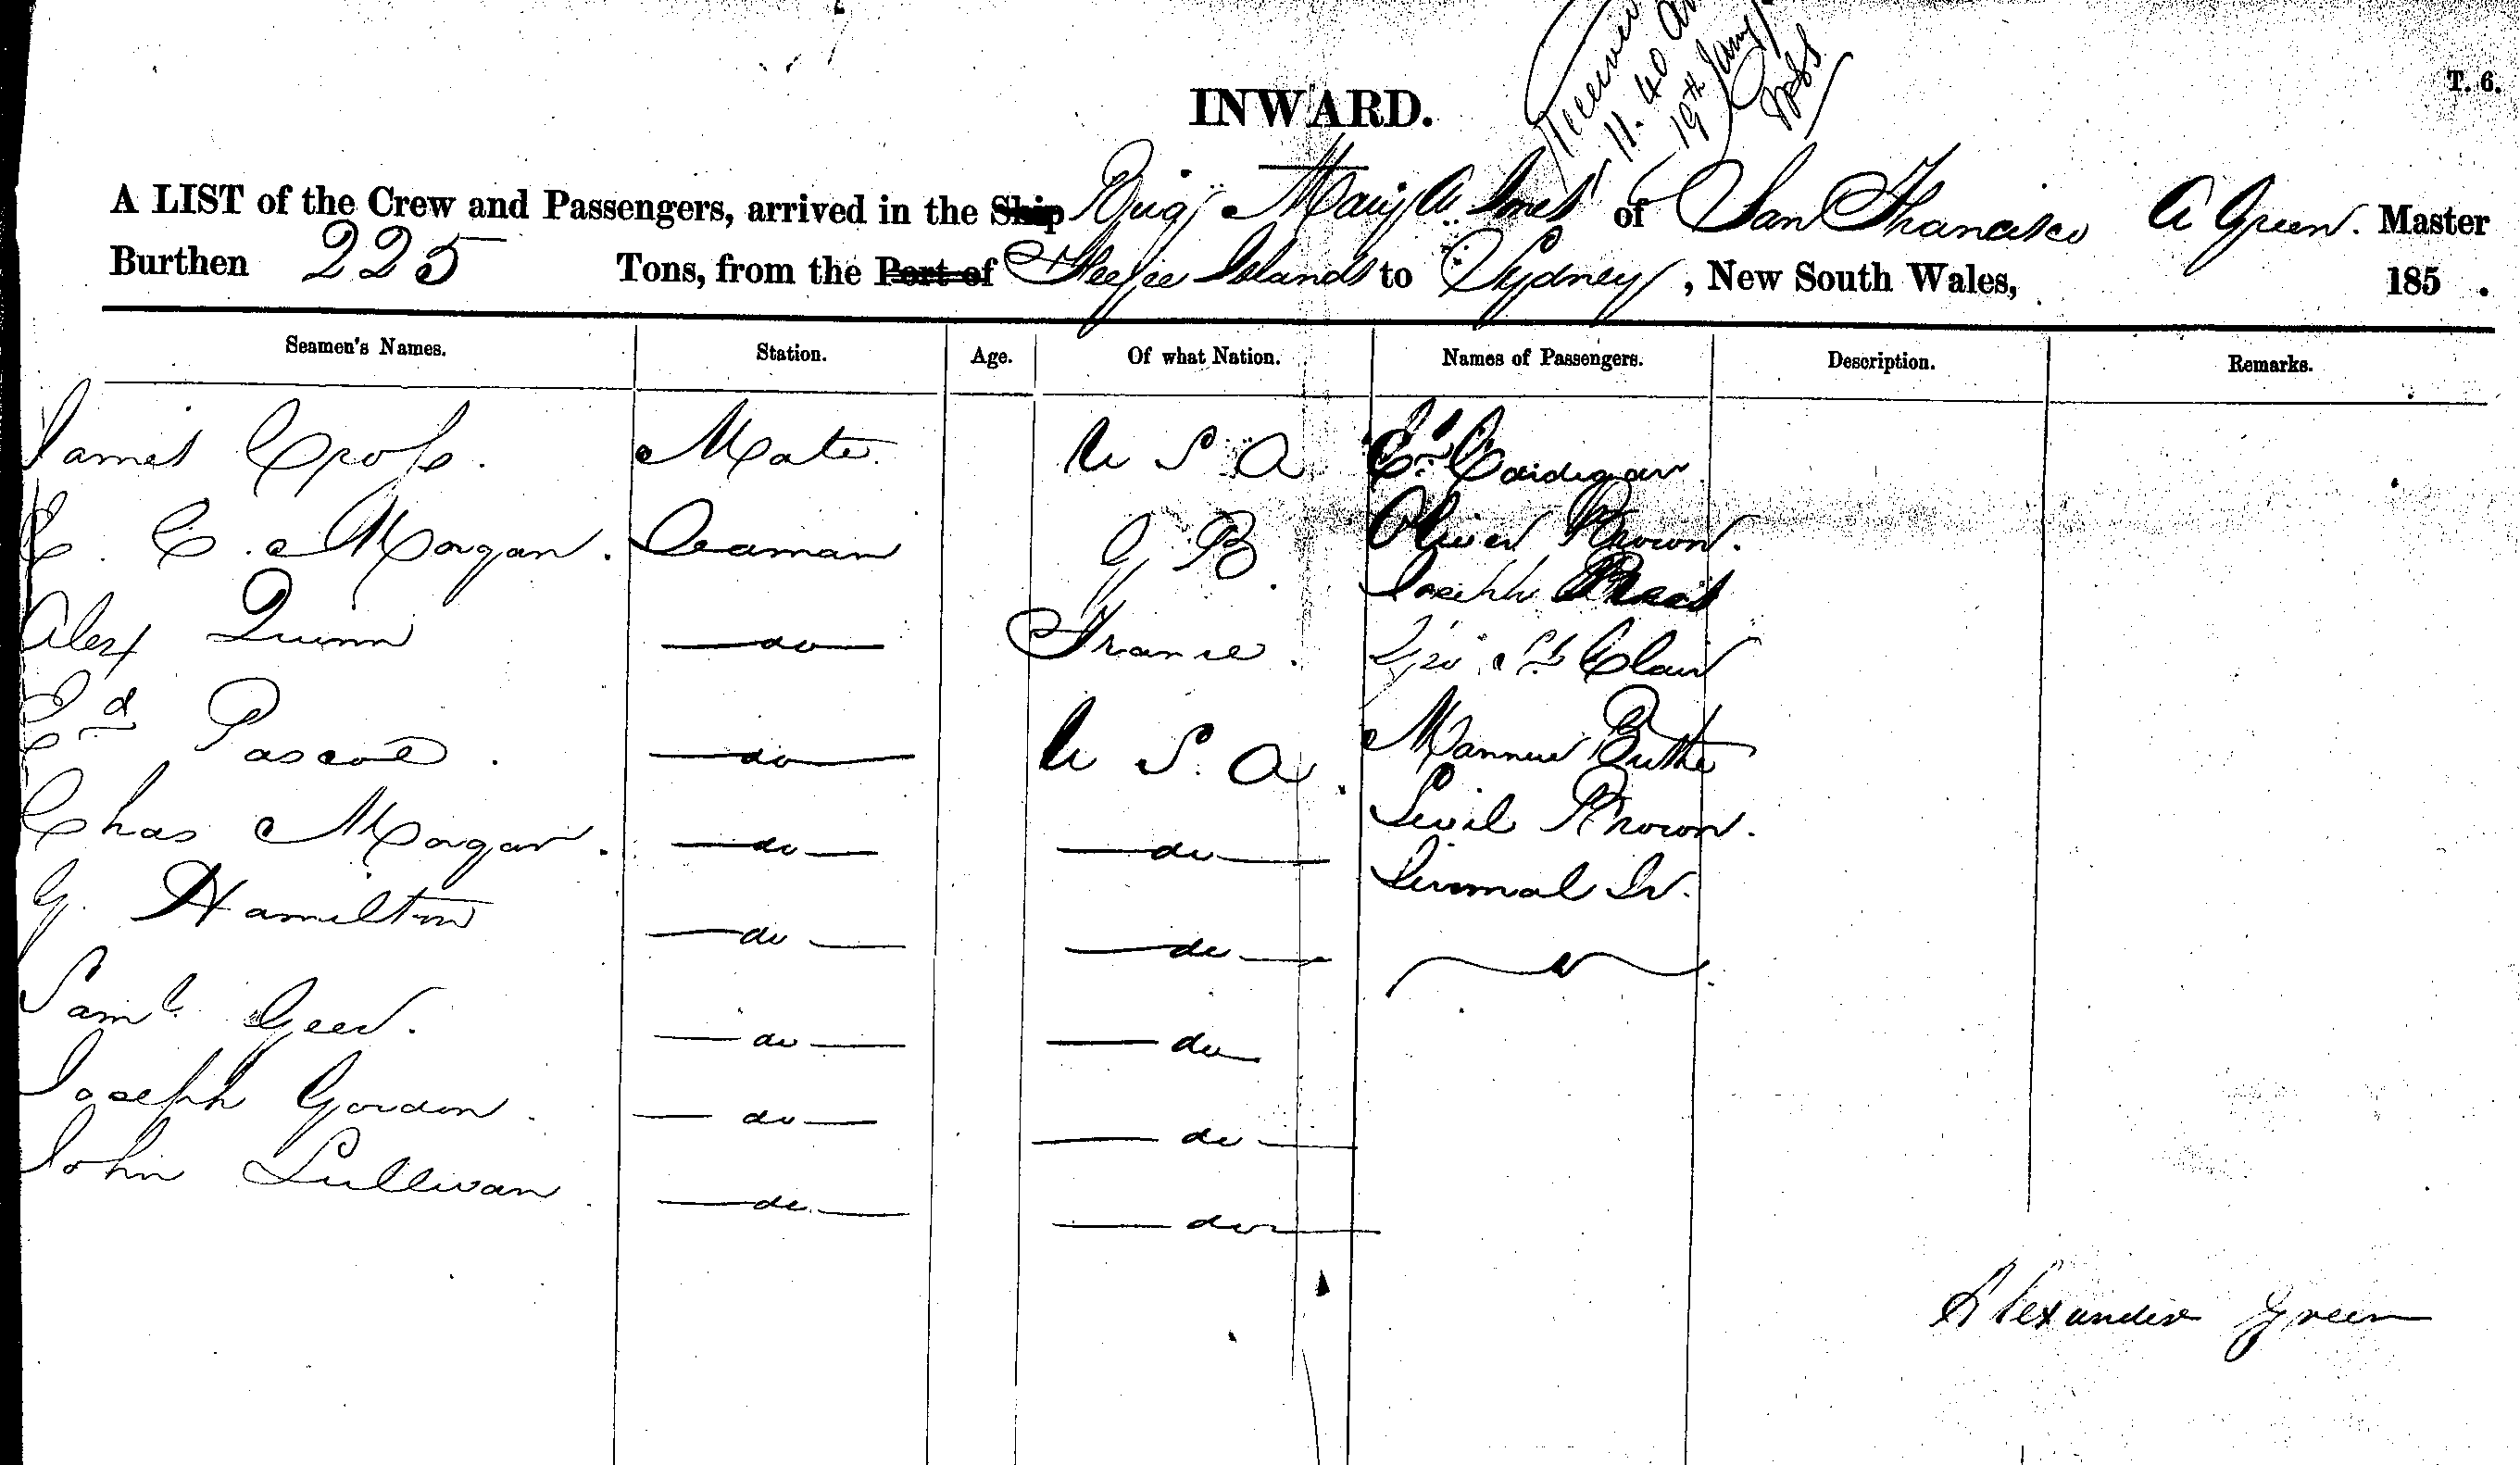 T. 6.
11. 40
19th Jany
INWARD.
A LIST of the Crew and Passengers, arrived in the Ship Brig Mary A Jones of San Francisco A Green. Master
Burthen 225 Tons, from the Port of Feejee Islands to Sydney, New South Wales, 185 .
Seamen's Names. Station. Age. Of what Nation. Names of Passengers. Description. Remarks.
James Cross. Mate. U S A Ed Cardigan
E. C. Morgan. Seaman G B. Oliver Brown.
Joseph
Alex Quinn do France. Geo St Clair
Ed Pascoe. do U S. A. Butler
Chas Morgan. do do Brown.
G. Hamilton do do
Saml. Geer. do do
Joseph Gordon. do do
John Sullivan do do
Alexander Green